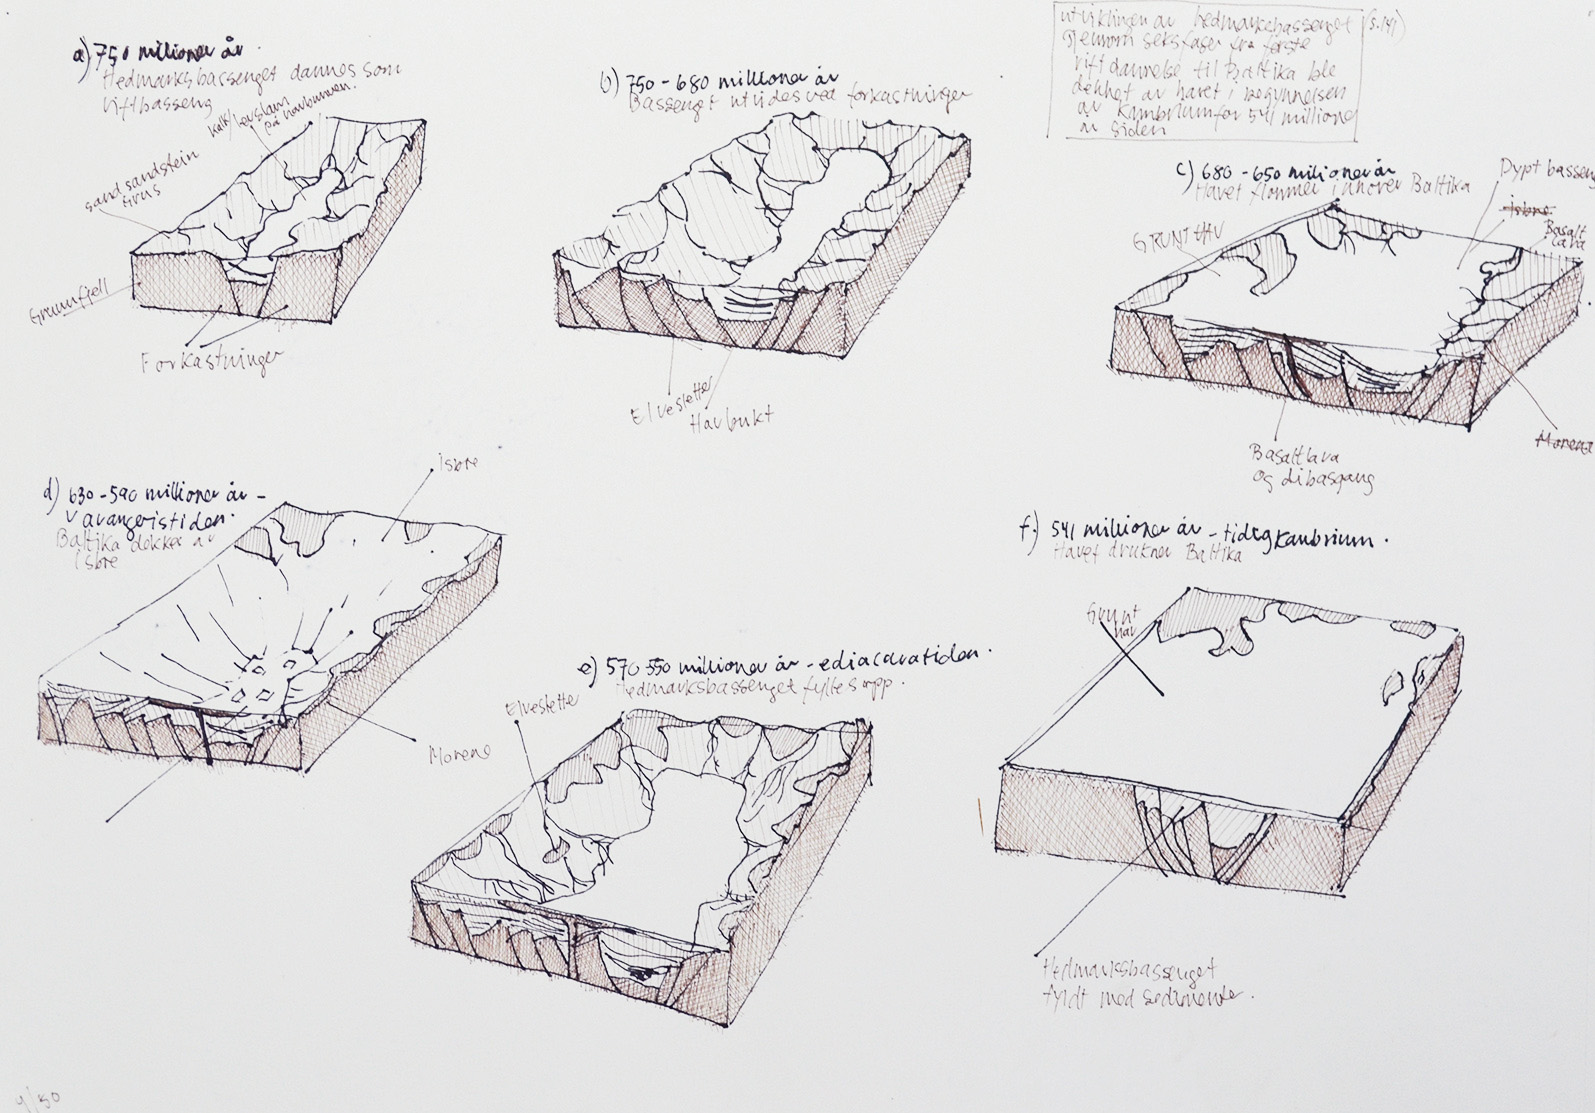 a) 750 millioner år.
Hedmarksbassenget dannes som
riftbasseng
kalk/leirslam
på havbunnen.
sand sandstein
Grunnfjell
Forkastninger
b) 750-680 millioner år
Bassenget utvides ved forkastninger
Elvesletter
Havbukt
utviklingen av hedmarksbassenget (s.141)
gjennom seks faser fra første
riftdannelse til Baltika ble
dekket av havet i begynnelsen
av kambrium for 541 millioner
år siden
c) 680-650 millioner år
Havet flommer innover Baltika
Dypt bassen
GRUNT HAV
Isbre
Basalt
lava
Morene
Basaltlava
og dibasgang
d) 630-590 millioner år -
Varangeristiden.
Baltika dekket av
isbre
isbre
Morene
e) 570-550 millioner år - ediacaratiden.
Hedmarksbassenget fylles opp.
Elvesletter
f) 541 millioner år - tidligkambrium.
Havet drukner Baltika
Grunt
hav
Hedmarksbassenget
fyldt med sedimenter.
9/30